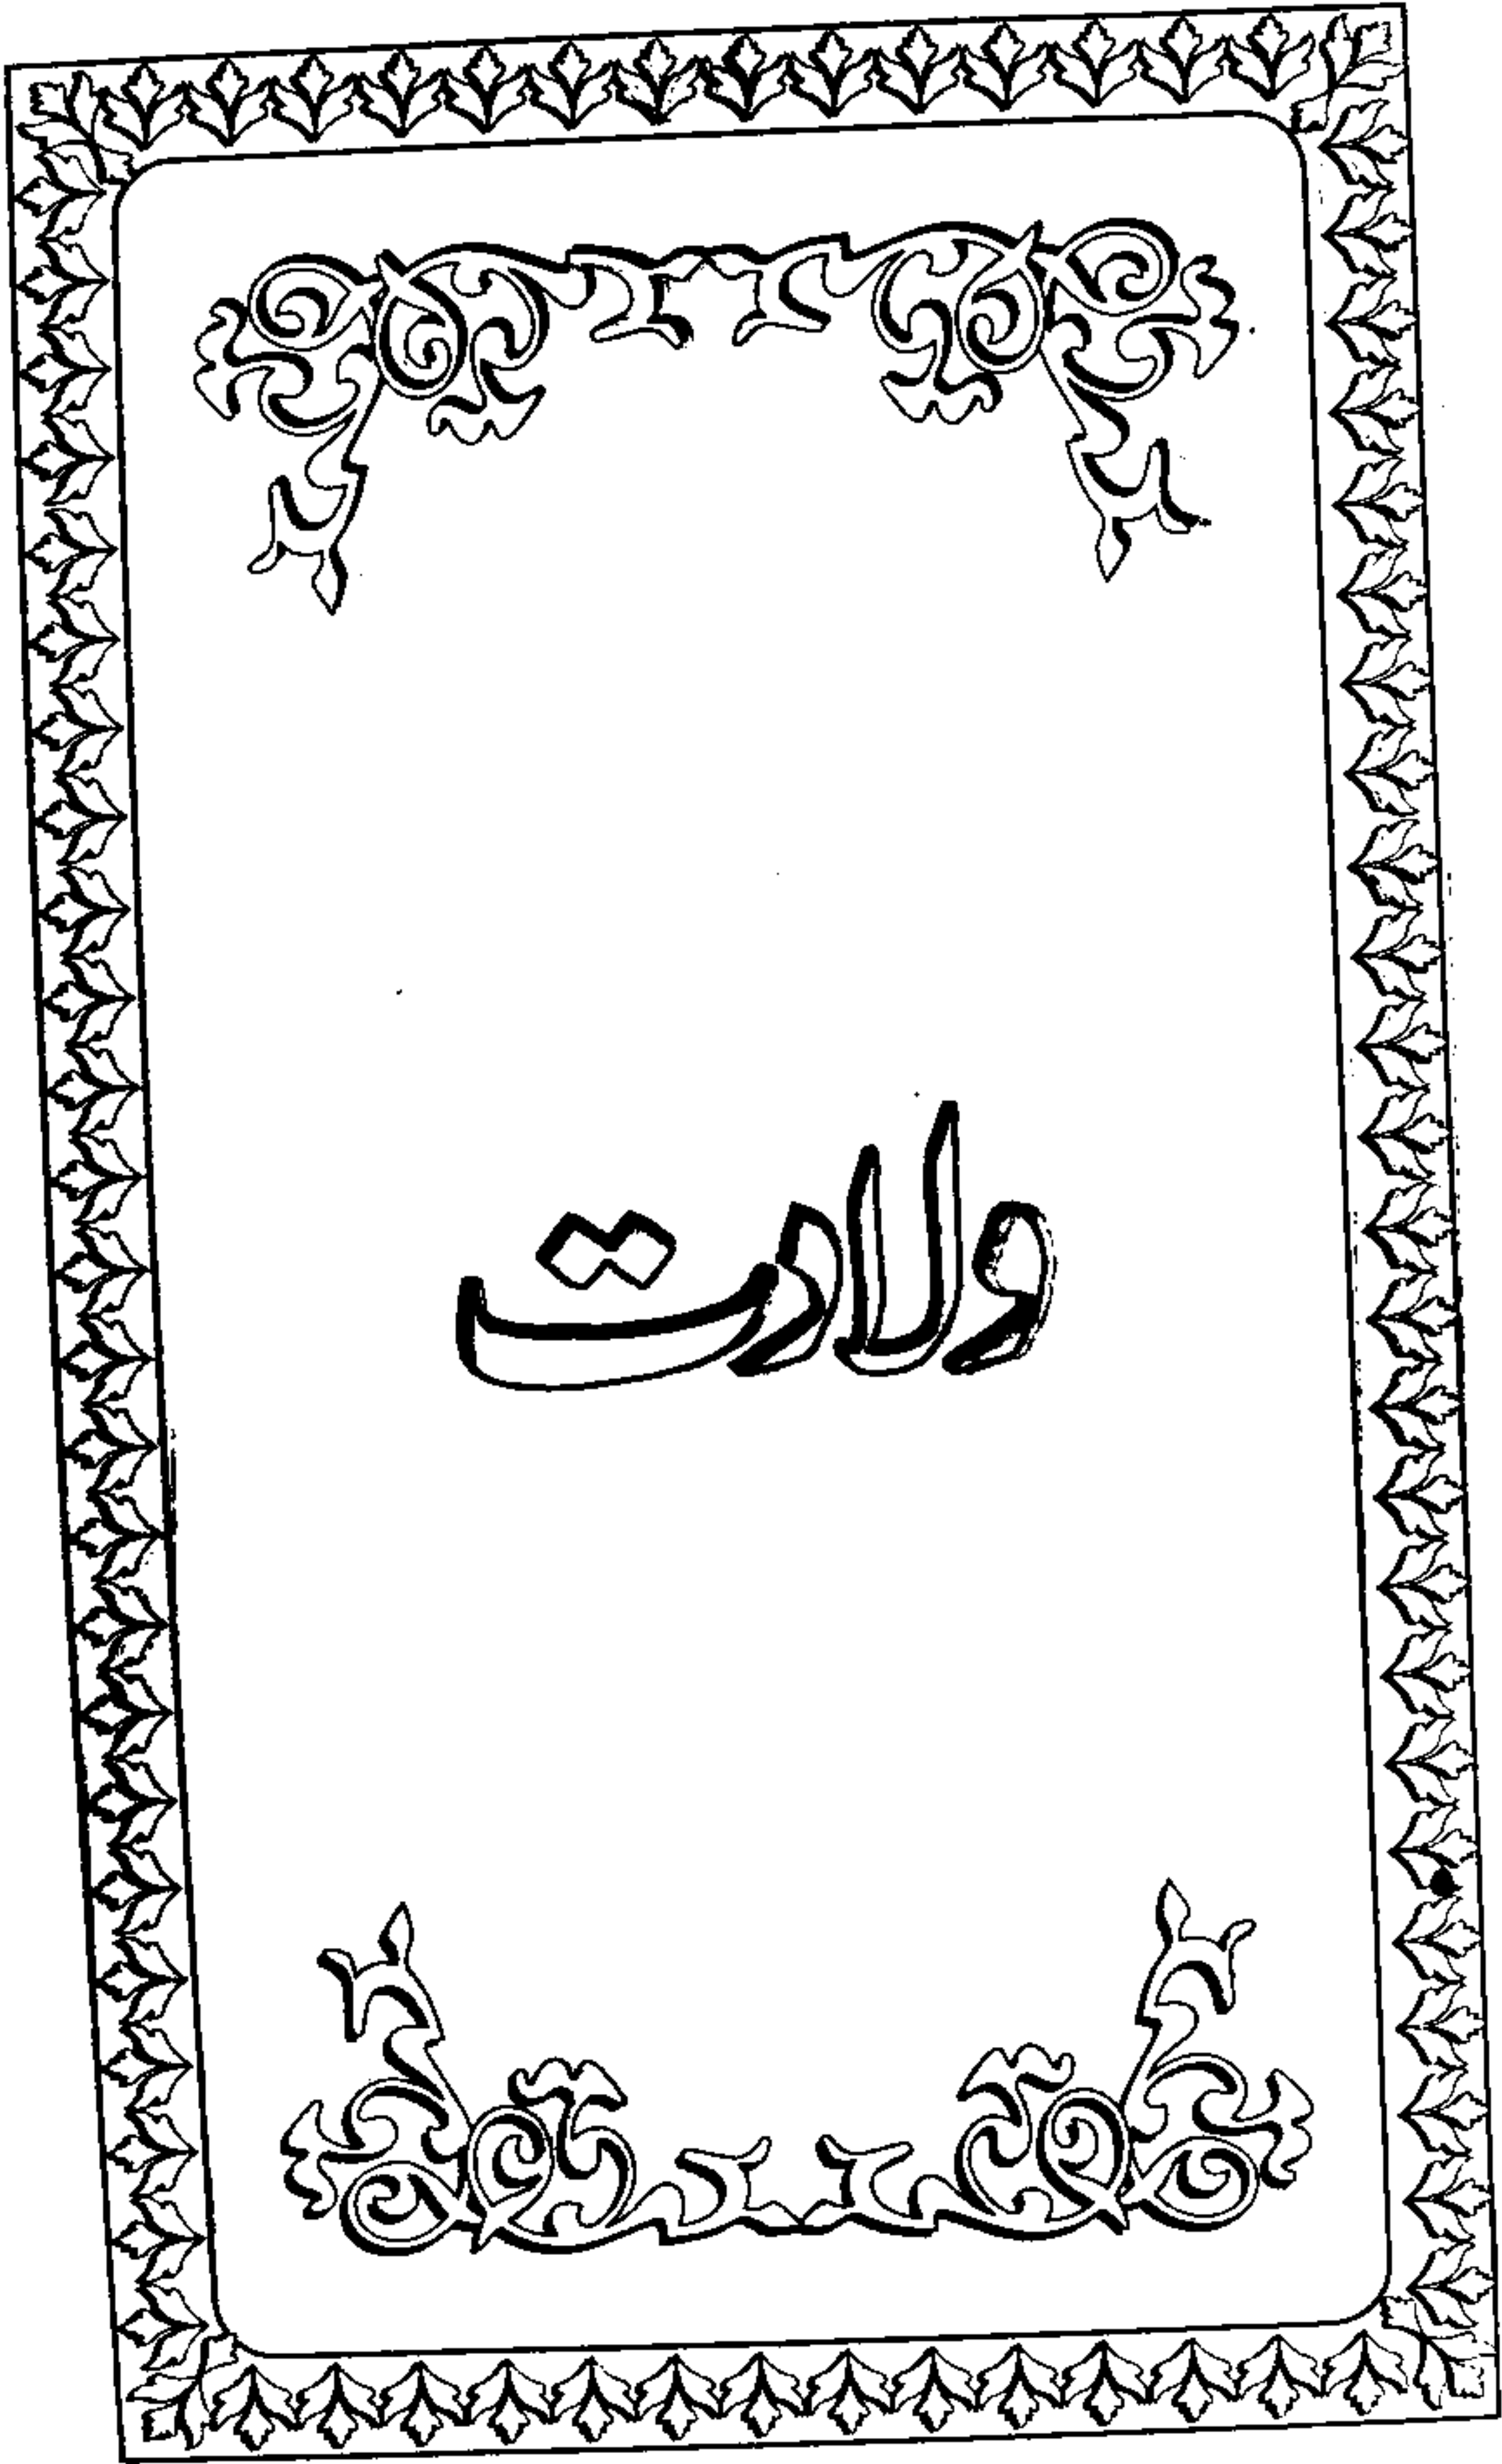 ولادت